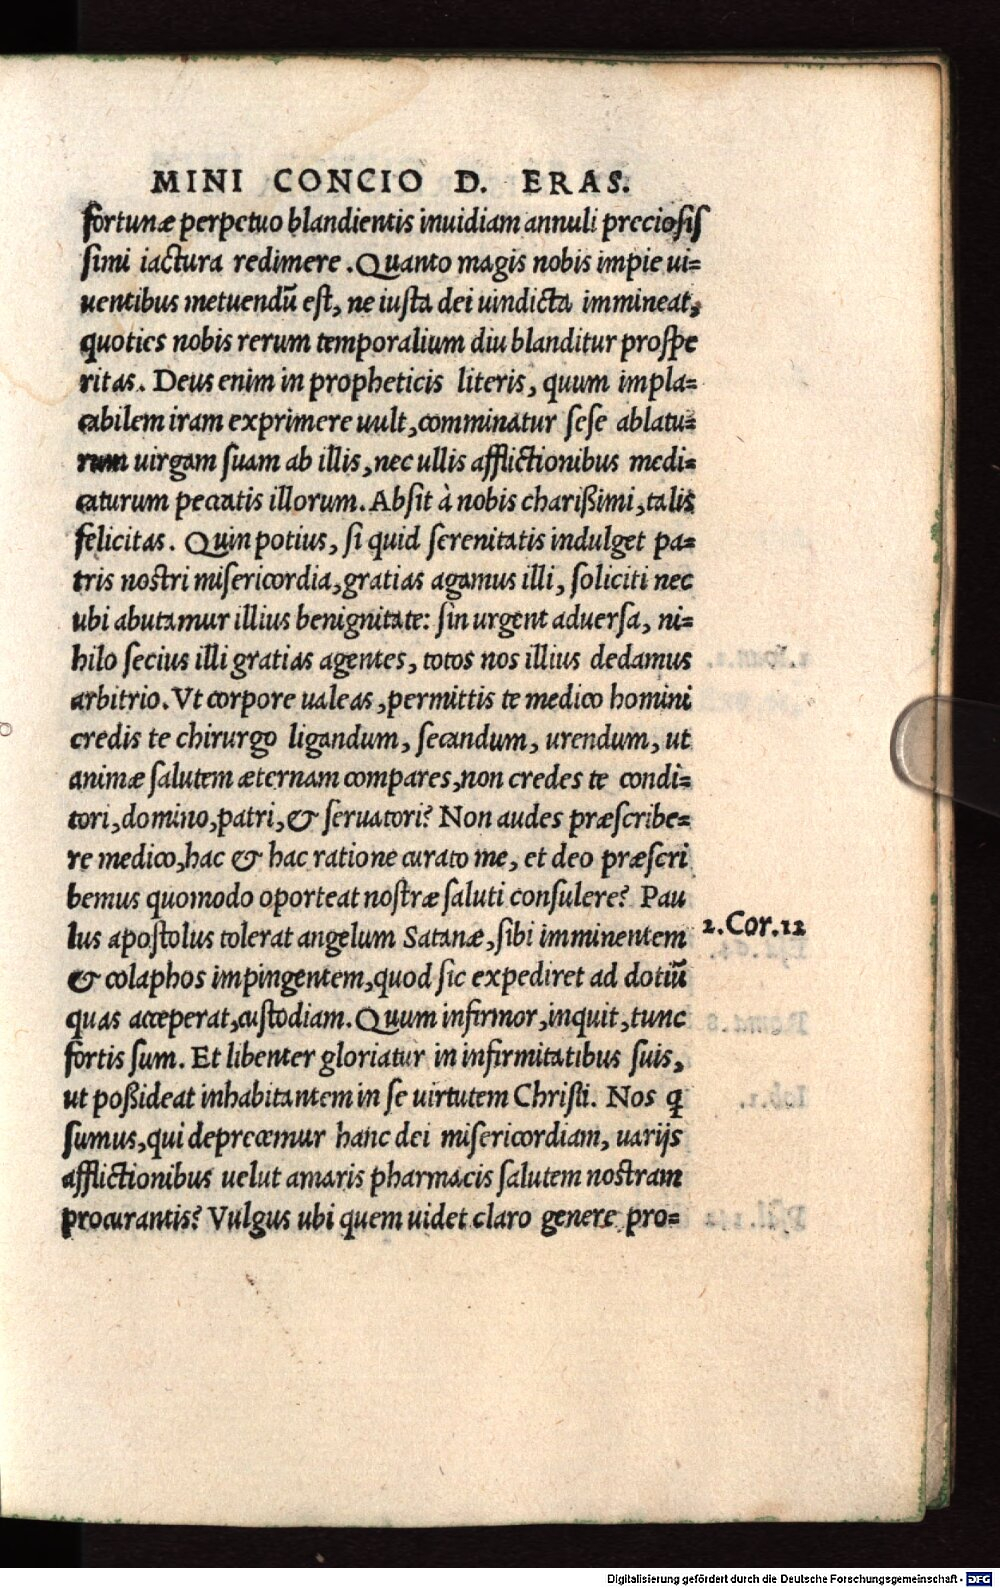 MINI CONCIO D. ERAS.
fortunæ perpetuo blandientis inuidiam annuli preciosis
simi iactura redimere. Quanto magis nobis impie ui=
uentibus metuendũ est, ne iusta dei uindicta immineat,
quoties nobis rerum temporalium diu blanditur prospe
ritas. Deus enim in propheticis literis, quum impla=
cabilem iram exprimere uult, comminatur sese ablatu=
rum uirgam suam ab illis, nec ullis afflictionibus medi=
caturum peccatis illorum. Absit à nobis charißimi, talis
felicitas. Quin potius, si quid serenitatis indulget pa=
tris nostri misericordia, gratias agamus illi, soliciti nec
ubi abutamur illius benignitate: sin urgent aduersa, ni=
hilo secius illi gratias agentes, totos nos illius dedamus
arbitrio. Vt corpore ualeas, permittis te medico homini
credis te chirurgo ligandum, secandum, urendum, ut
animæ salutem æternam compares, non credes te condi=
tori, domino, patri, & seruatori? Non audes præscribe=
re medico, hac & hac ratione curato me, et deo præscri
bemus quomodo oporteat nostræ saluti consulere? Pau
lus apostolus tolerat angelum Satanæ, sibi imminentem
2.Cor.12
& colaphos impingentem, quod sic expediret ad dotiũ
quas acceperat, custodiam. Quum infirmor, inquit, tunc
fortis sum. Et libenter gloriatur in infirmitatibus suis,
ut poßideat inhabitantem in se uirtutem Christi. Nos ꝗ
sumus, qui deprecemur hanc dei misericordiam, uarijs
afflictionibus uelut amaris pharmacis salutem nostram
procurantis? Vulgus ubi quem uidet claro genere pro=
Digitalisierung gefördert durch die Deutsche Forschungsgemeinschaft - DFG